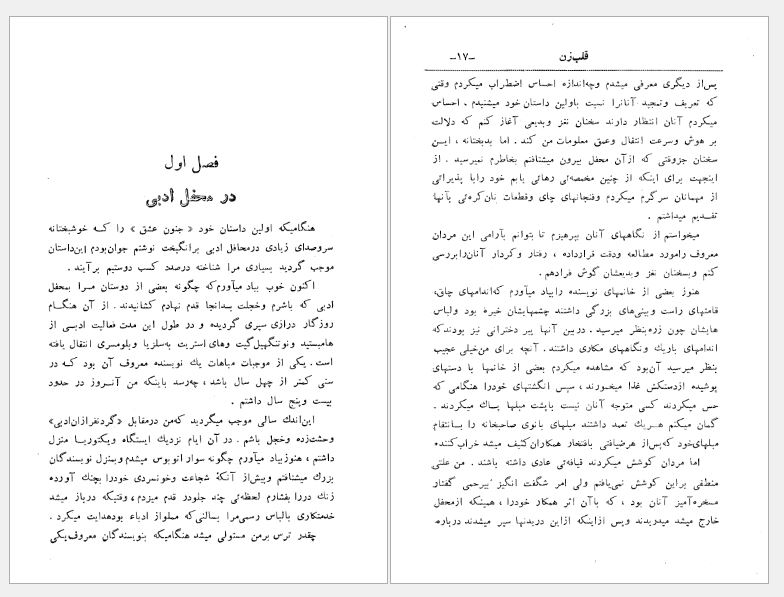 فصل اول
در محفل ادبی
هنگامیکه اولین داستان خود «جنون عشق» را کـه خوشبختانه
سروصدای زیادی درمحافل ادبی برانگیخت نوشتم جوان‌بودم این‌داستان
موجب گردید بسیاری مرا شناخته درصدد کسب دوستیم برآیند.
اکنون خوب بیاد میآورم‌که چگونه بعضی از دوستان مـرا بمحفل
ادبی که باشرم وخجلت بـدانجا قدم نهادم کشانیدند. از آن هنگـام
روزگار درازی سپری گردیده و در طول این مدت فعالیت ادبی از
هامپستید ونوتنگهیل‌گیت وهای استریت به‌سلزیا وبلومسری انتقال یافته
است. یکی از موجبات مباهات یك نویسنده معروف آن بود کـه در
سنی کمتر از چهل سال باشد، چه‌رسد باینکه من آنـروز در حدود
بیست وپنج سال داشتم.
این‌اندك سالی موجب میگردید که‌من درمقابل «گردنفرازان‌ادبی»
وحشت‌زده وخجل باشم. در آن ایام نزدیك ایستگاه ویکتوریـا منزل
داشتم، هنوزبیاد میآورم چگونه سوار اتوبوس میشدم وبمنزل نویسندگان
بزرك میشتافتم وپیش‌از آنکه شجاعت وخونسردی خودرا بچنك آورده
زنك دررا بفشارم لحظه‌ئی چند جلودر قدم میزدم، وقتیکه درباز میشد
خدمتکاری بالباس رسمی‌مرا بسالنی‌که مملواز ادباء بودهدایت میکرد.
چقدر ترس برمن مستولی میشد هنگامیکه بنویسندگان معروف‌یکی
قلب‌زن
-۱۷-
پس‌از دیگری معرفی میشدم وچه‌اندازه احساس اضطراب میکردم وقتی
که تعریف وتمجید آنانرا نسبت باولین داستان خود میشنیدم. احساس
میکردم آنان انتظار دارند سخنان نغز وبدیعی آغاز کنم که دلالت
بر هوش وسرعت انتقال وعمق معلومات من کند. اما بدبختانه، ایـن
سخنان جزوقتی که ازآن محفل بیرون میشتافتم بخاطرم نمیرسید. از
اینجهت برای اینکه از چنین مخمصه‌ئی رهائی یابم خود رابا پذیرائی
از مهمانان سرگرم میکردم وفنجانهای چای وقطعات نان‌کره‌ئی بآنها
تقـدیم میداشتم.
میخواستم از نگاههای آنان بپرهیزم تا بتوانم بآرامی این مردان
معروف رامورد مطالعه ودقت قرارداده، رفتار وکردار آنان‌رابررسی
کنم وبسخنان نغز وبدیعشان گوش فرادهم.
هنوز بعضی از خانمهای نویسنده رابیاد میآورم که‌اندامهای چاق،
قامتهای راست وبینی‌های بزرگی داشتند چشمهایشان خیره بود ولباس
هایشان چون زره‌بنظر میرسید. دربین آنها پیر دخترانی نیز بودندکه
اندامهای باریك ونگاههای مکاری داشتند. آنچه برای من‌خیلی عجیب
بنظر میرسید آن‌بود که مشاهده میکردم بعضی از خانمها با دستهای
پوشیده ازدستکش غذا میخـورند، سپس انگشتهای خودرا هنگامی که
حس میکردند کسی متوجه آنان نیست باپشت مبلها پـاك میکردند.
گمان میکنم هـریك تعمد داشتند مبلهای بانوی صاحبخانه را بـاانتقام
مبلهای‌خود که‌پس‌از هرضیافتی بافتخار همکاران‌کثیف میشد خراب‌کنند.
اما مردان کوشش میکردند قیافه‌ئی عادی داشته باشند. من علتی
منطقی براین کوشش نمی‌یافتم ولی امر شگفت انگیز بیرحمی گفتار
مسخره‌آمیز آنان بود، که باآن اثر همکار خودرا، همینکه ازمحفل
خارج میشد میدریدند وپس ازاینکه ازاین دریدنها سیر میشدند درباره